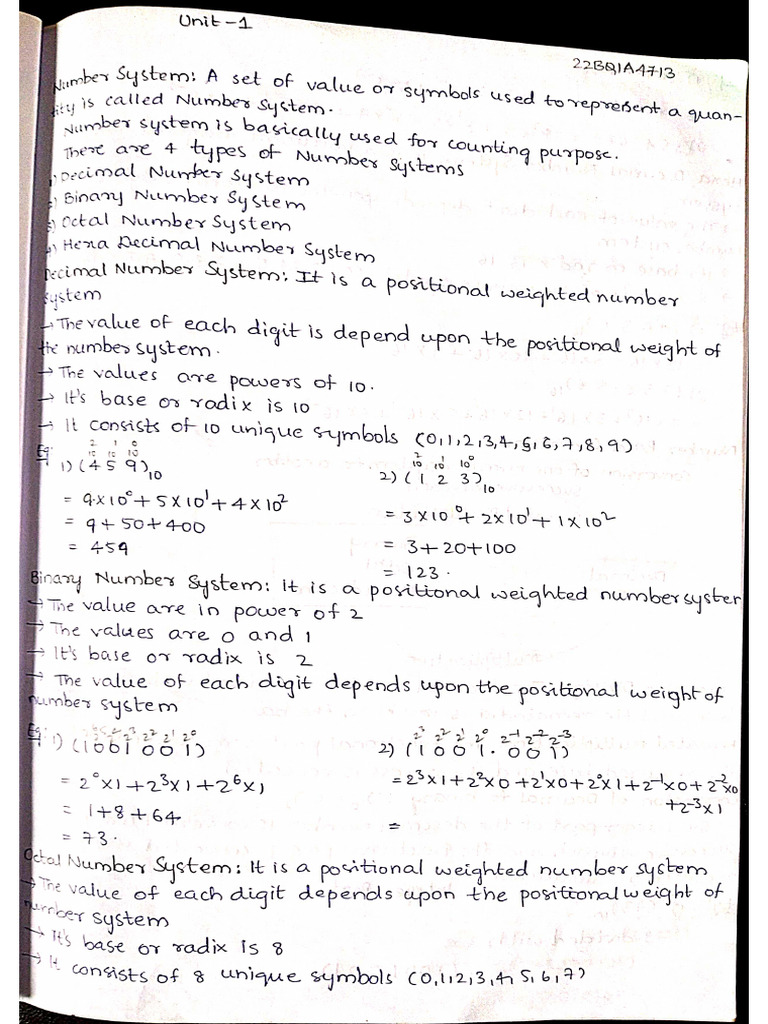 Unit-1
22BQ1A4713
Number System: A set of value or symbols used to represent a quan-
tity is called Number System.
Number system is basically used for counting purpose.
There are 4 types of Number Systems
1) Decimal Number System
2) Binary Number System
3) Octal Number System
4) Hexa Decimal Number System
Decimal Number System: It is a positional weighted number
system
→ The value of each digit is depend upon the positional weight of
the number system.
→ The values are powers of 10.
→ It's base or radix is 10
→ It consists of 10 unique symbols (0,1,2,3,4,5,6,7,8,9)
Eg: 1) (4 5 9)₁₀
10² 10¹ 10⁰
= 9×10⁰ + 5×10¹ + 4×10²
= 9 + 50 + 400
= 459
10² 10¹ 10⁰
2) (1 2 3)₁₀
= 3×10⁰ + 2×10¹ + 1×10²
= 3 + 20 + 100
= 123.
Binary Number System: It is a positional weighted number syster
→ The value are in power of 2
→ The values are 0 and 1
→ It's base or radix is 2
→ The value of each digit depends upon the positional weight of
number system
2³ 2² 2¹ 2⁰
Eg: 1) (1001001)
= 2⁰×1 + 2³×1 + 2⁶×1
= 1 + 8 + 64
= 73.
2³ 2² 2¹ 2⁰ 2⁻¹ 2⁻² 2⁻³
2) (1 0 0 1 . 0 0 1)
= 2³×1 + 2²×0 + 2¹×0 + 2⁰×1 + 2⁻¹×0 + 2⁻²×0
+ 2⁻³×1
=
Octal Number System: It is a positional weighted number system
→ The value of each digit depends upon the positional weight of
number system
→ It's base or radix is 8
→ It consists of 8 unique symbols (0,1,2,3,4,5,6,7)